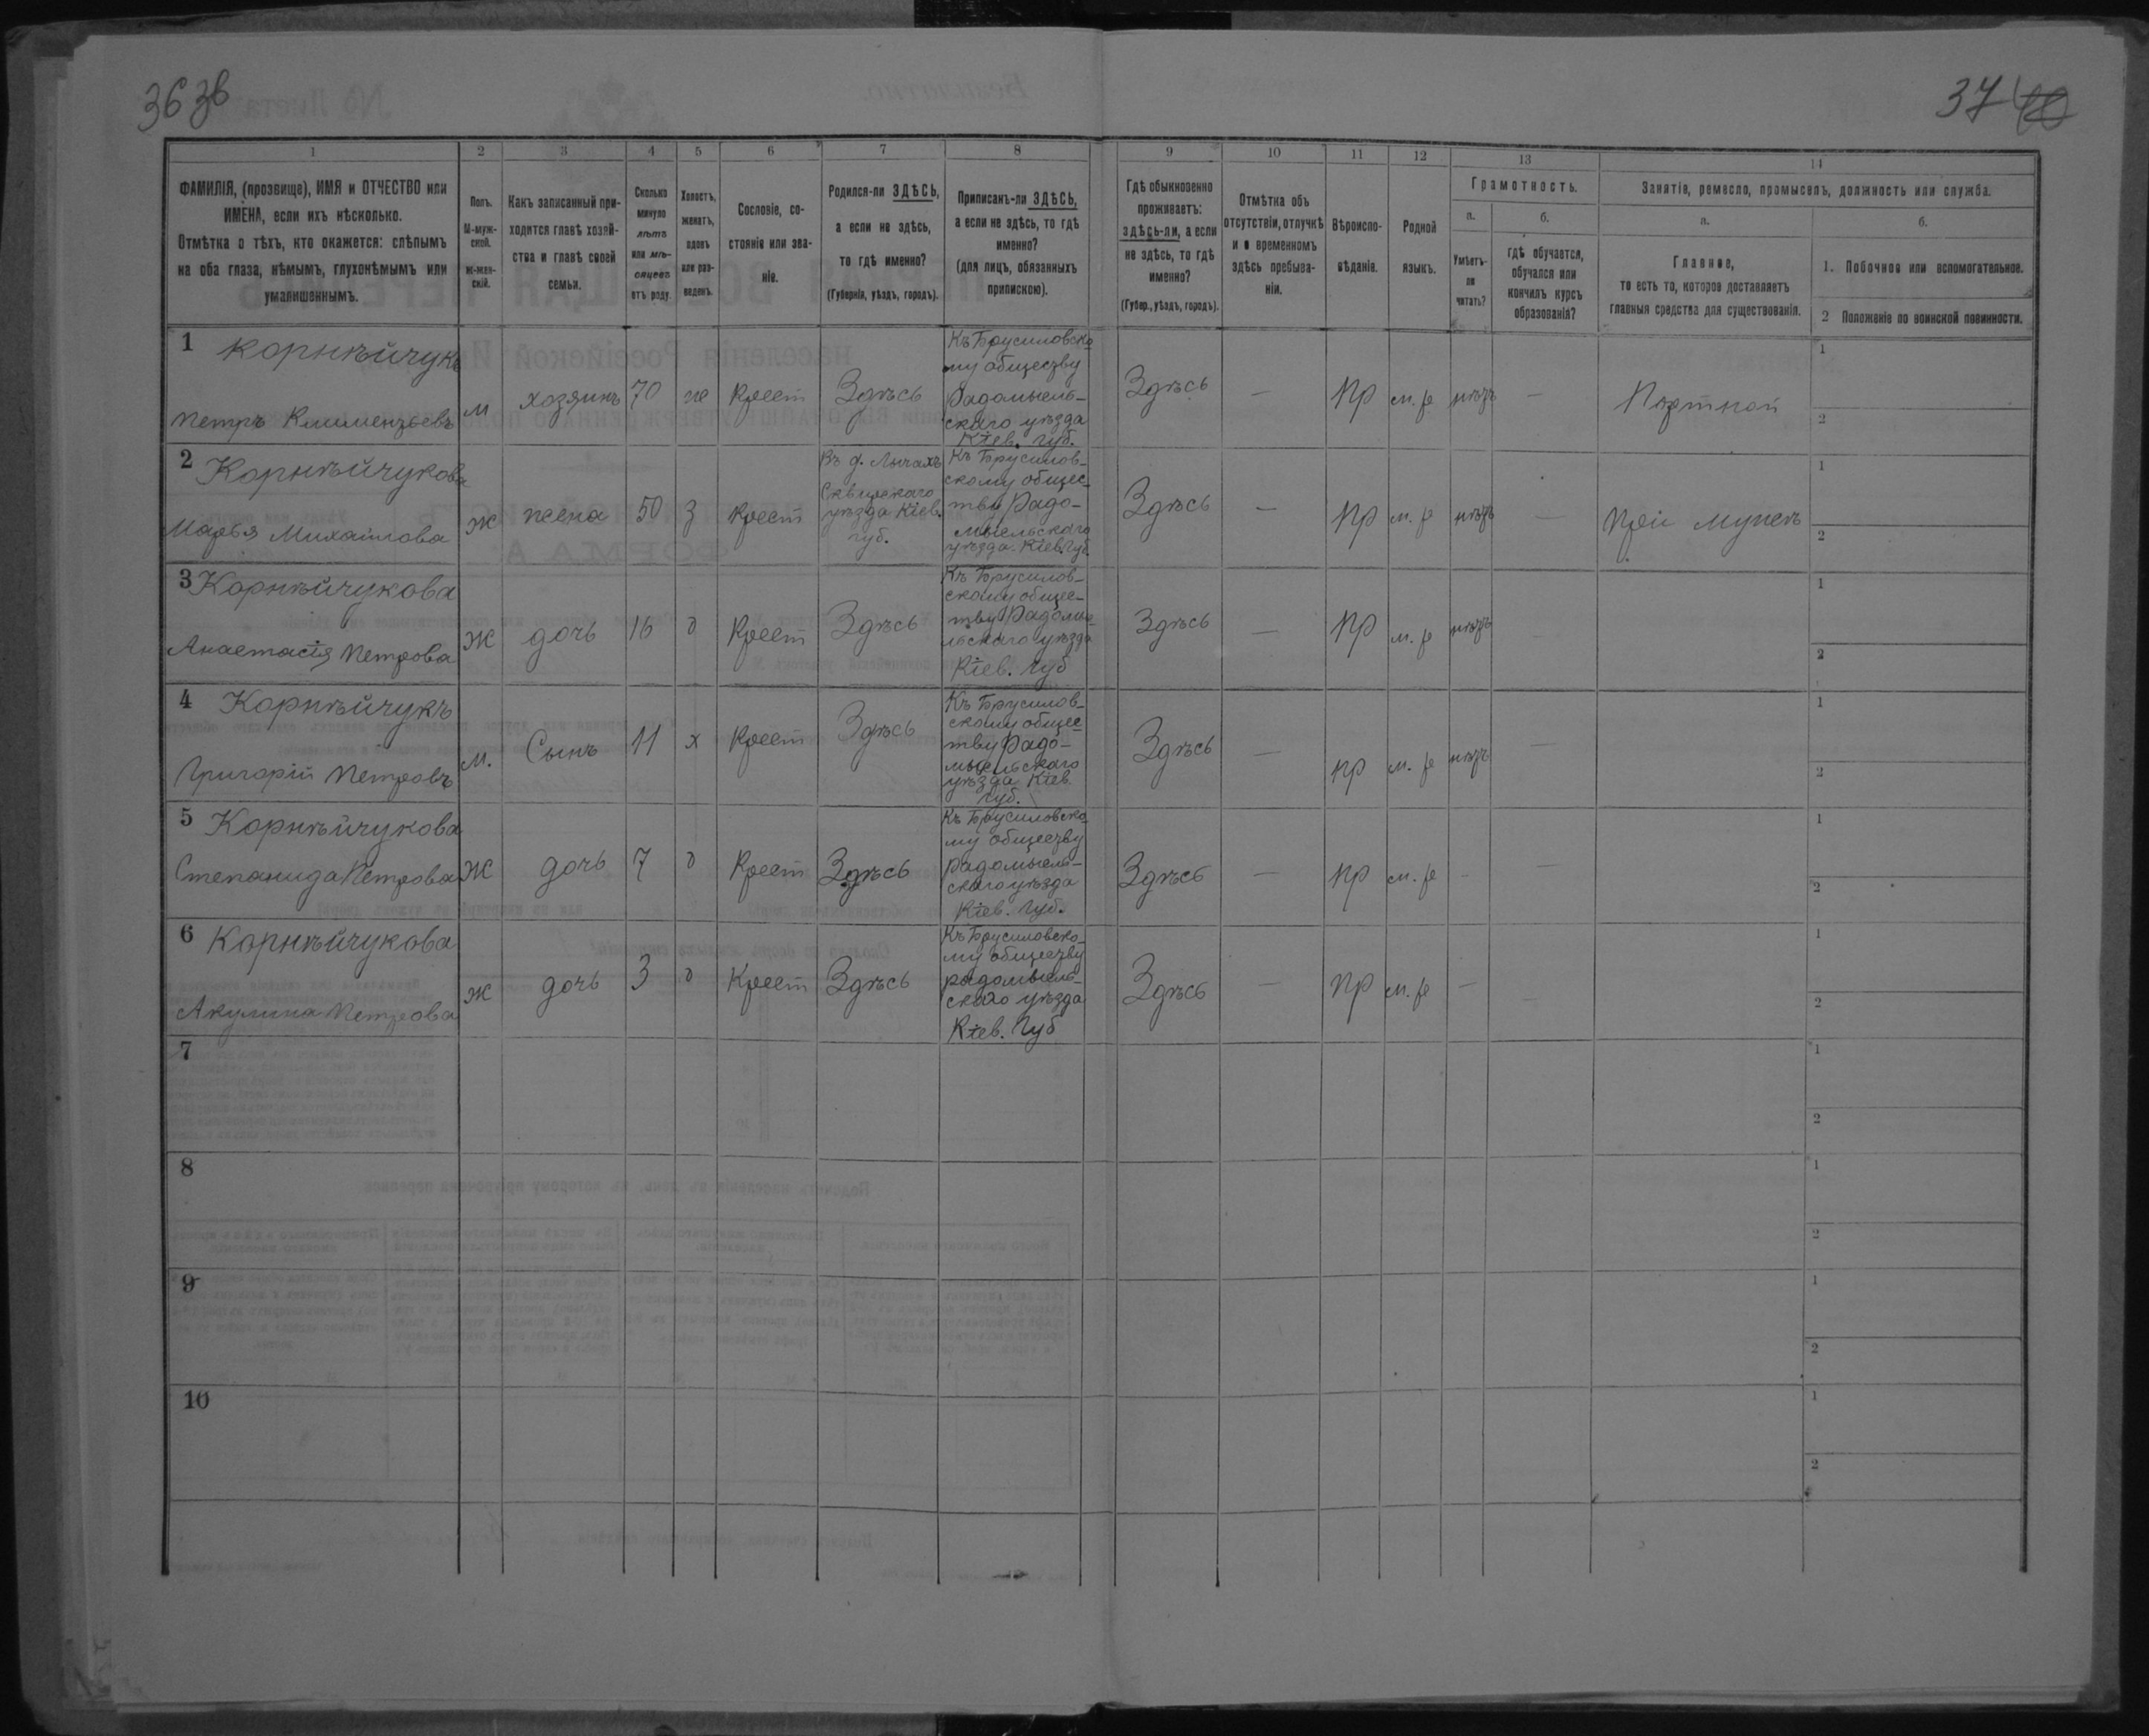 36 зв
37 40
1
2
3
4
5
6
7
8
9
10
11
12
13
14
ФАМИЛІЯ, (прозвище), ИМЯ и ОТЧЕСТВО или
ИМЕНА, если ихъ нѣсколько.
Отмѣтка о тѣхъ, кто окажется: слѣпымъ
на оба глаза, нѣмымъ, глухонѣмымъ или
умалишеннымъ.
Полъ.
М-муж-
ской.
ж-жен-
скій.
Какъ записанный при-
ходится главѣ хозяй-
ства и главѣ своей
семьи.
Сколько
минуло
лѣтъ
или мѣ-
сяцевъ
отъ роду.
Холостъ,
женатъ,
вдовъ
или раз-
веденъ.
Сословіе, со-
стояніе или зва-
ніе.
Родился-ли ЗДѢСЬ,
а если не здѣсь,
то гдѣ именно?
(Губернія, уѣздъ, городъ).
Приписанъ-ли ЗДѢСЬ,
а если не здѣсь, то гдѣ
именно?
(для лицъ, обязанныхъ
припискою).
Гдѣ обыкновенно
проживаетъ:
здѣсь-ли, а если
не здѣсь, то гдѣ
именно?
(Губер., уѣздъ, городъ).
Отмѣтка объ
отсутствіи, отлучкѣ
и о временномъ
здѣсь пребыва-
ніи.
Вѣроиспо-
вѣданіе.
Родной
языкъ.
Грамотность.
а.
Умѣетъ-
ли
читать?
б.
гдѣ обучается,
обучался или
кончилъ курсъ
образованія?
Занятіе, ремесло, промыселъ, должность или служба.
а.
Главное,
то есть то, которое доставляетъ
главныя средства для существованія.
б.
1. Побочное или вспомогательное.
2 Положеніе по воинской повинности.
1 Корнѣйчукъ
Петръ Климентьевъ
м
хозяинъ
70
же
Крест
Здѣсь
Къ Брусиловско
му обществу
Радомысль-
скаго уѣзда
Кіев. губ.
Здѣсь
—
пр
м. р
нѣтъ
—
Портной
1
2
2 Корнѣйчукова
Марья Михайлова
Ж
жена
50
з
Крест
Въ д. Лычахъ
Сквирскаго
уѣзда Кіев.
губ.
Къ Брусилов-
скому общес-
тву Радо-
мысльскаго
уѣзда. Кіев. Губ.
Здѣсь
—
пр
м. р
нѣтъ
—
При мужѣ
1
2
3 Корнѣйчукова
Анастасія Петрова
Ж
дочь
16
д
Крест
Здѣсь
Къ Брусилов-
скому общес-
тву Радомы-
льскаго уѣзда
Кіев. губ
Здѣсь
—
пр
м. р
нѣтъ
1
2
4 Корнѣйчукъ
Григорій Петровъ
м.
Сынъ
11
х
Крест
Здѣсь
Къ Брусилов-
скому общес-
тву Радо-
мысльскаго
уѣзда Кіев
губ.
Здѣсь
—
пр
м. р
нѣтъ
—
1
2
5 Корнѣйчукова
Степанида Петрова
Ж
дочь
7
д
Крест
Здѣсь
Къ Брусиловско-
му обществу
Радомысль-
скаго уѣзда
Кіев. Губ.
Здѣсь
—
пр
м. р
—
—
1
2
6 Корнѣйчукова
Акулина Петрова
ж
дочь
3
д
Крест
Здѣсь
Къ Брусиловско-
му обществу
радомысль-
скаго уѣзда
Кіев. Губ
Здѣсь
—
пр
м. р
—
1
2
7
1
2
8
1
2
9
1
2
10
1
2